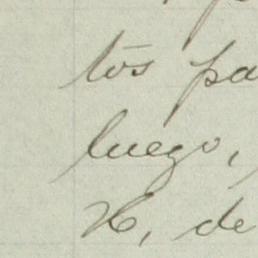 tos pa
luego,
H, de